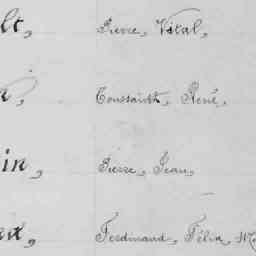 lt, Pierre, Vital,
n, Toussaint, René,
in, Pierre, Jean,
nt, Ferdinand, Félix, Ma